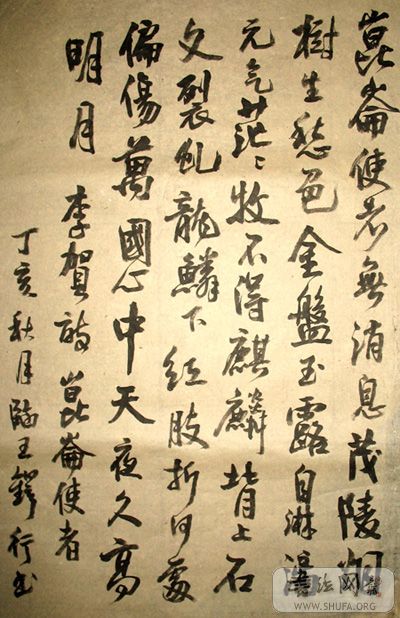 崑崙使者無消息茂陵烟
樹生愁色金盤玉露自淋漓
元气茫〻收不得麒麟背上石
文裂虬龍鱗下红肢折何處
偏傷萬國心中天夜久高
明月 李賀詩崑崙使者
丁亥秋月臨王鐸行书
书法网
WWW.SHUFA.ORG